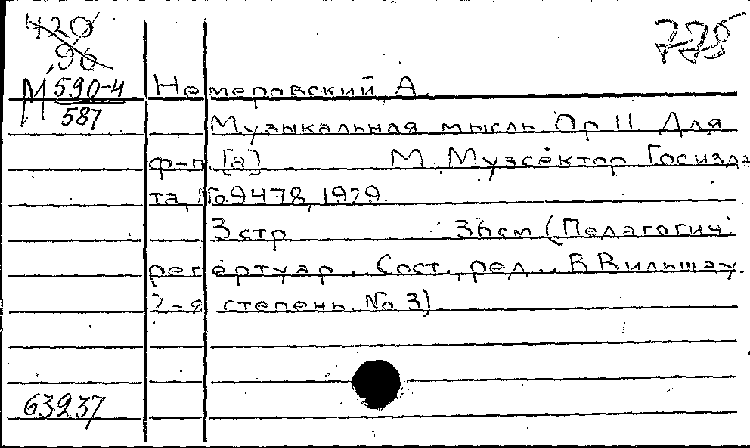 420
96
775
М 590-4
587
Немеровский, А.
Музыкальная мысль Ор 11 Для
ф-п. [а] М., Музсектор Госизда
та, No 9478, 1929
3 стр 36 см (Педагогич.
репертуар. Сост., ред. В. Вильшау.
2-я степень. No 3)
63937